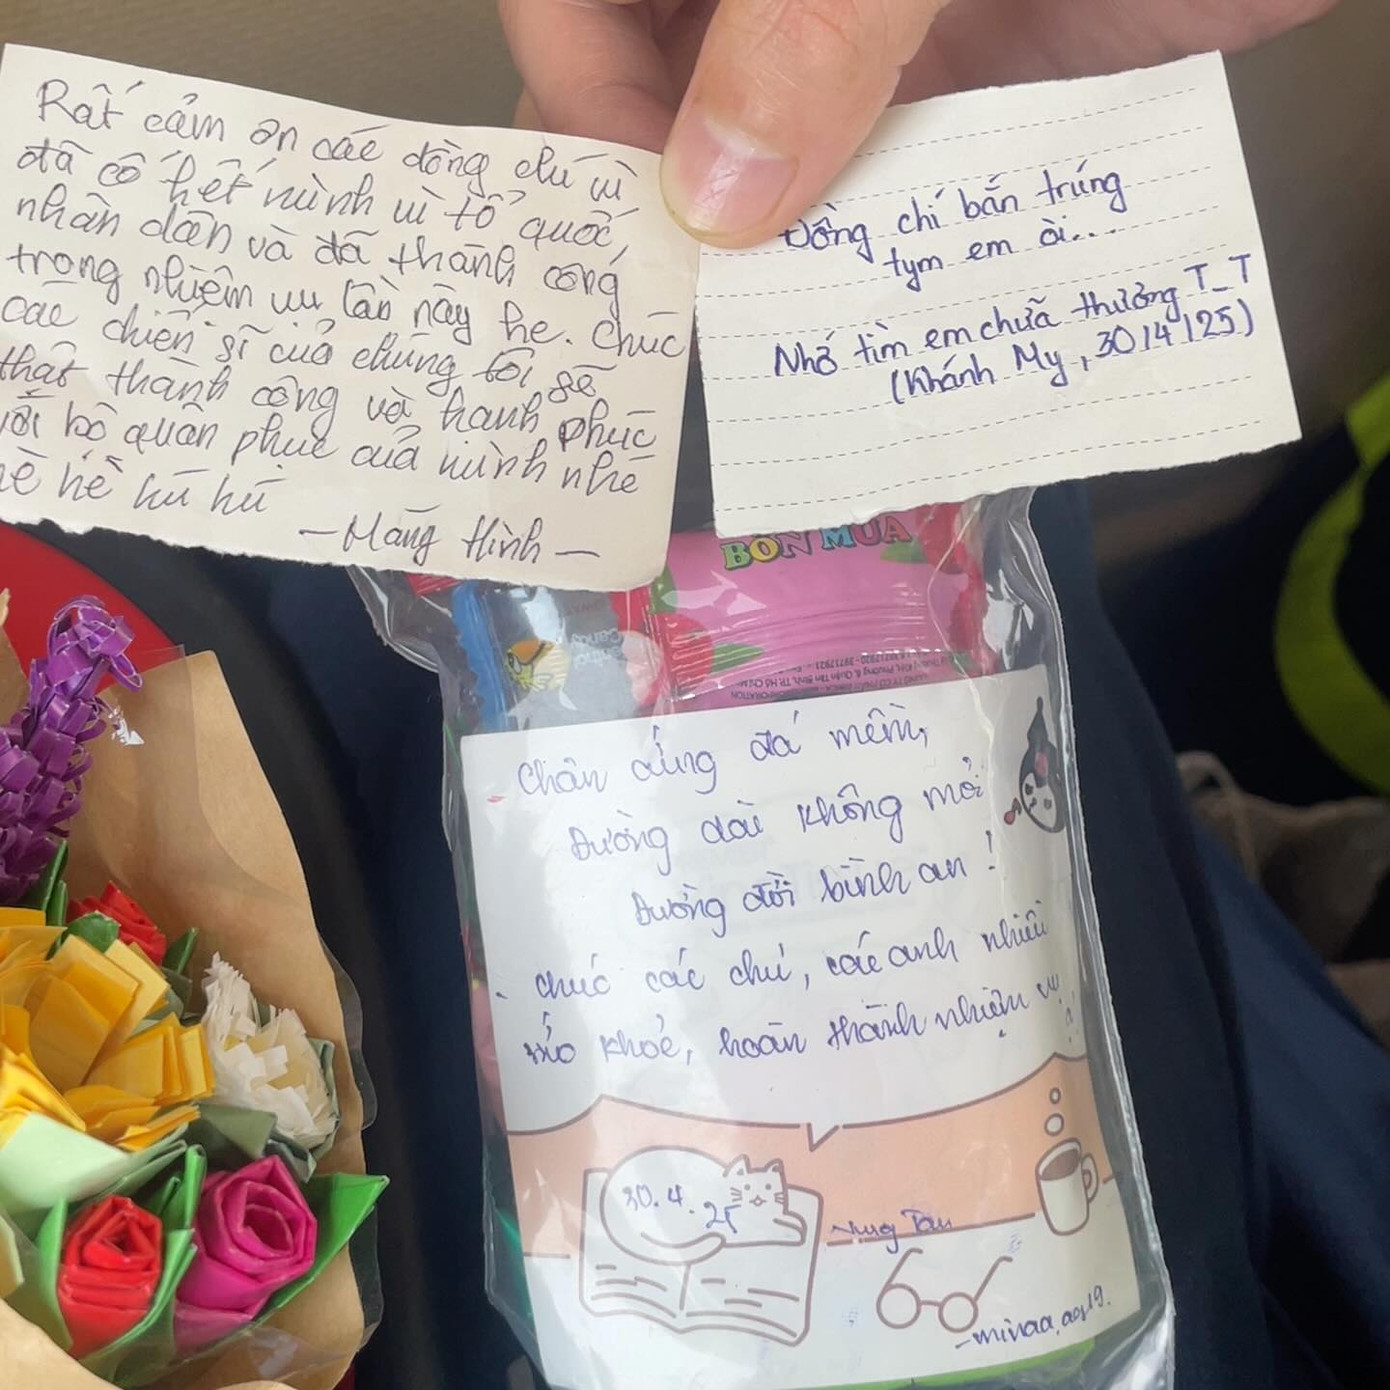 Rất cảm ơn các đồng chí vì
đã cố hết mình vì tổ quốc,
nhân dân và đã thành công
trong nhiệm vụ lần này he. Chúc
các chiến sĩ của chúng tôi sẽ
thật thành công và hạnh phúc
với bộ quân phục của mình nhé
hè hè hú hú
—Hằng Hình—
Đồng chí bắn trúng
tym em òi...
Nhớ tìm em chữa thương T_T
(Khánh My, 30/4/25)
BỐN MÙA
- Chân cứng đá mềm,
Đường dài không mỏi
Đường đời bình an!
- Chúc các chú, các anh nhiều
sức khỏe, hoàn thành nhiệm vụ!
30.4.25
Vũng Tàu
-minaa, aq19.